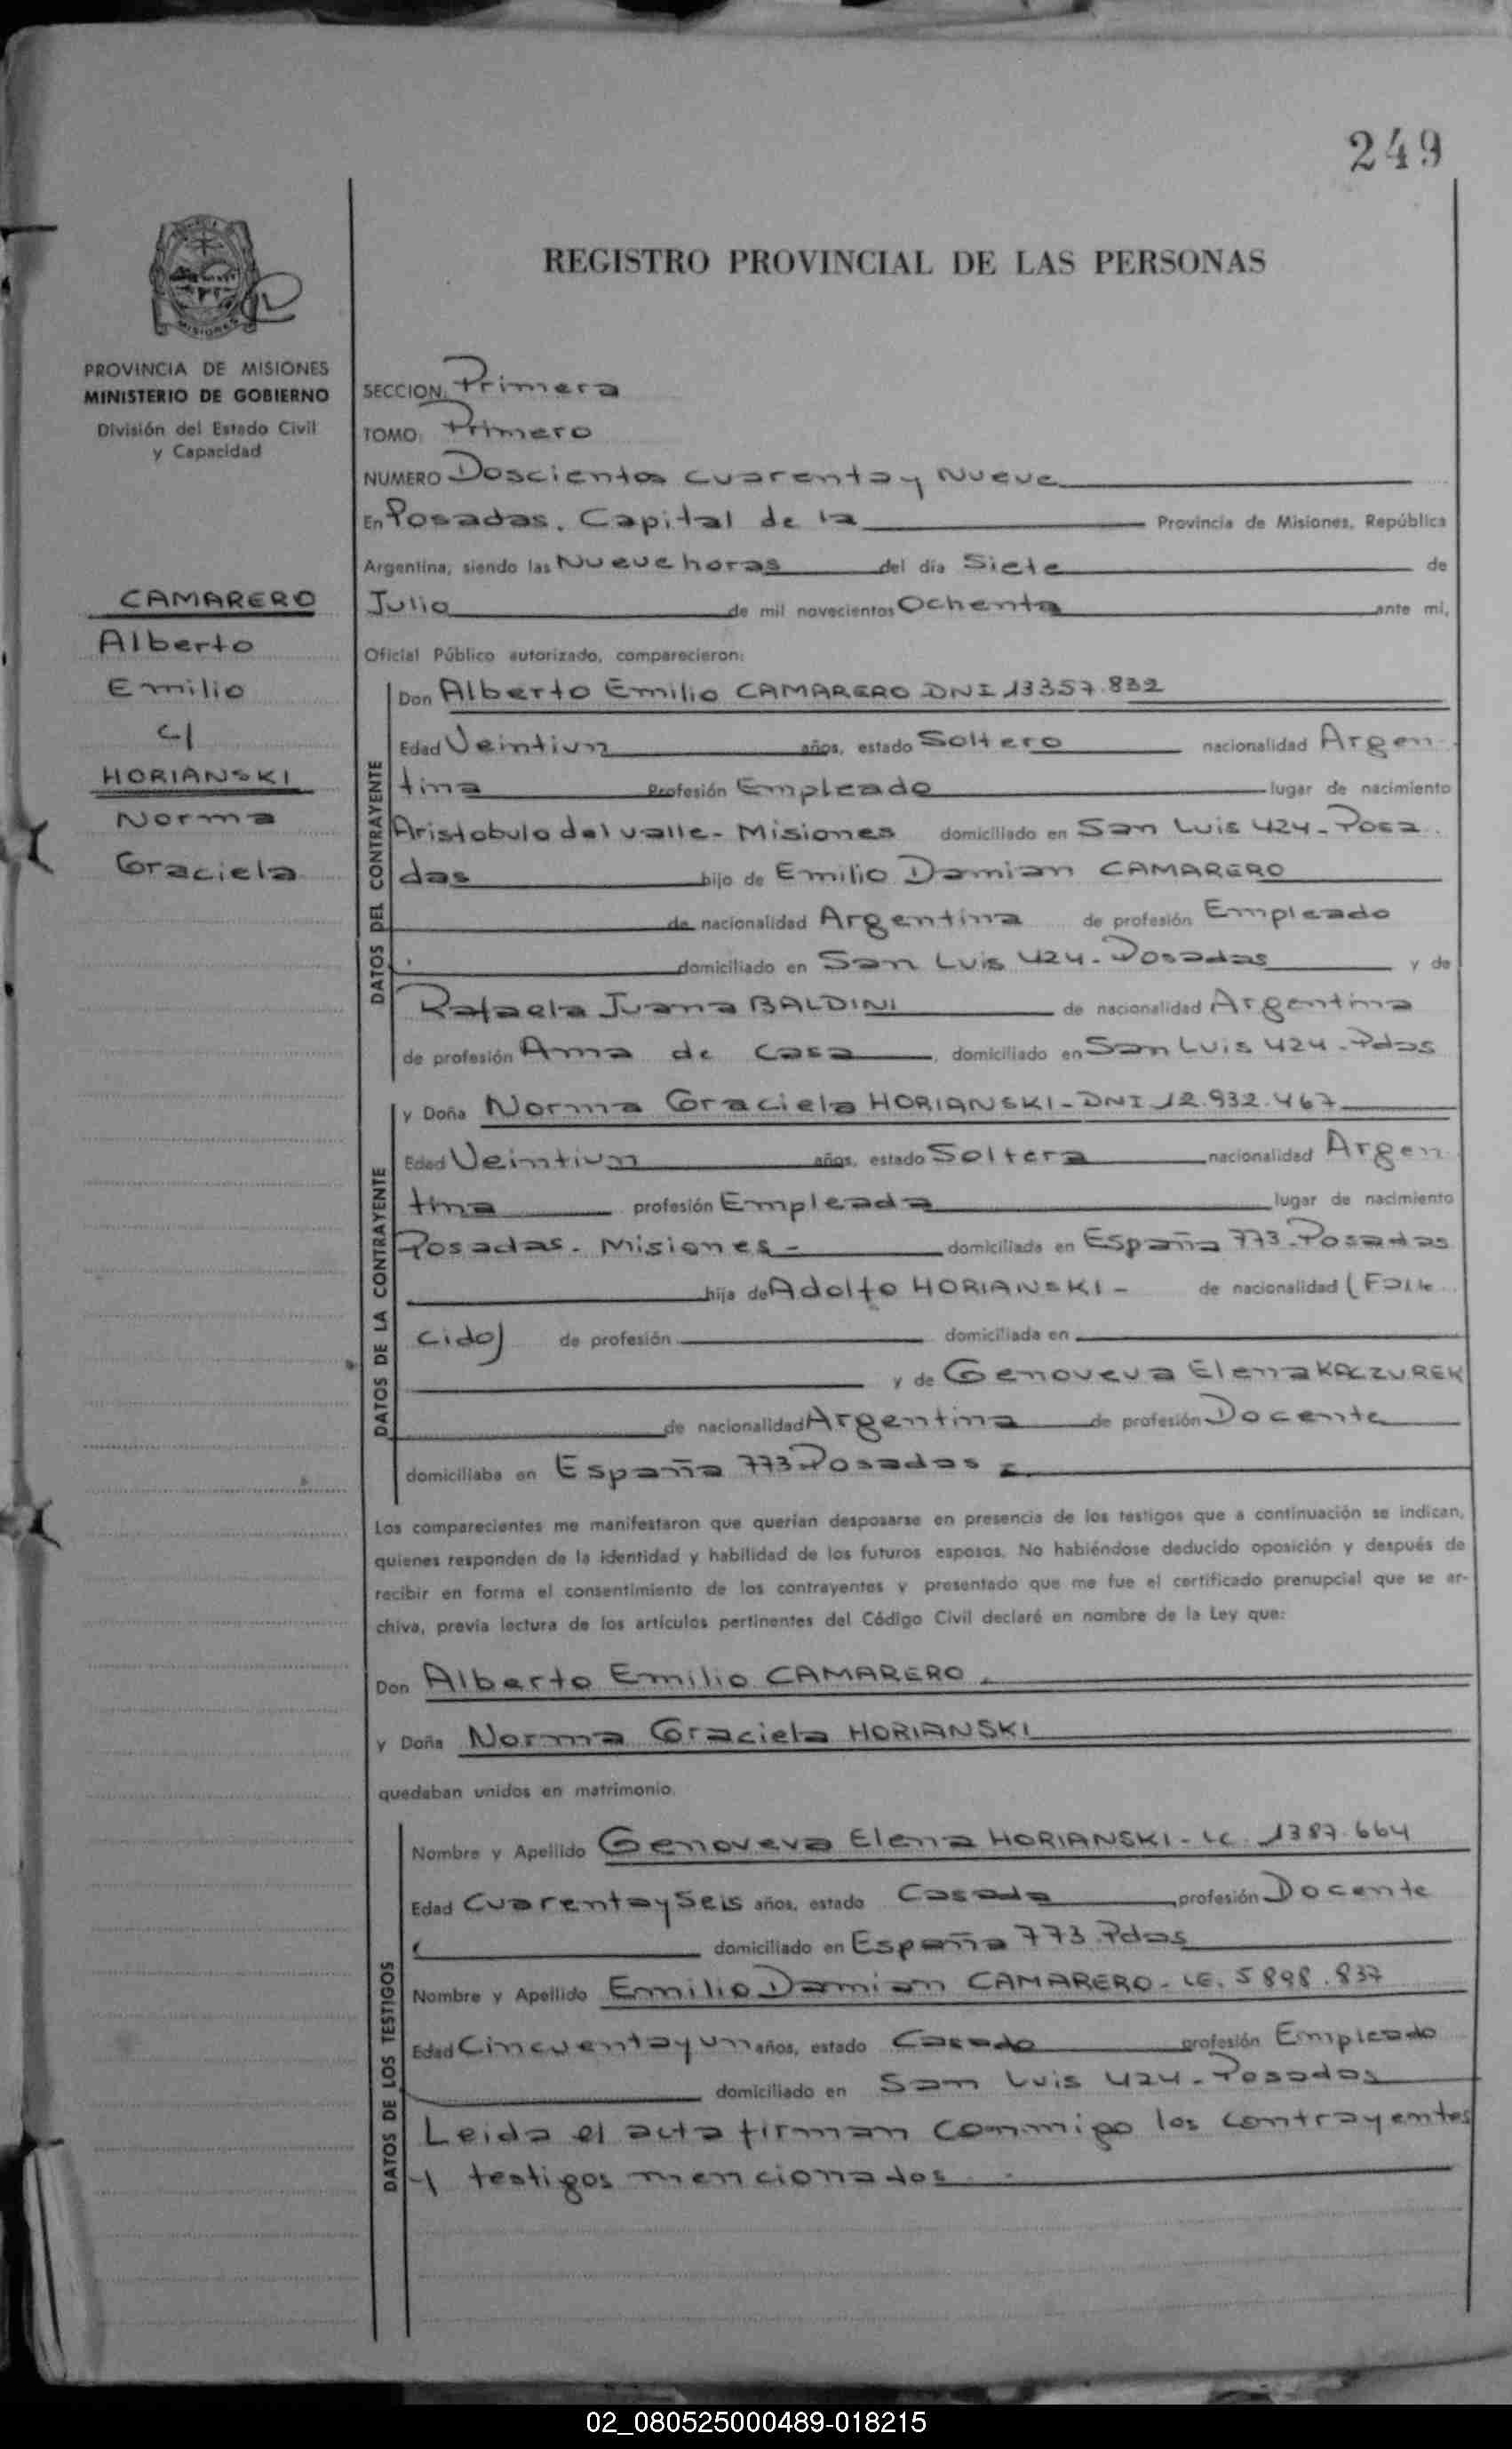 249
REGISTRO PROVINCIAL DE LAS PERSONAS
MISIONES
PROVINCIA DE MISIONES
MINISTERIO DE GOBIERNO
División del Estado Civil
y Capacidad
CAMARERO
Alberto
Emilio
c/
HORIANSKI
Norma
Graciela
SECCION: Primera
TOMO: Primero
NUMERO Doscientos cuarenta y Nueve
En Posadas. Capital de la Provincia de Misiones, República
Argentina; siendo las Nueve horas del día Siete de
Julio de mil novecientos Ochenta ante mi,
Oficial Público autorizado, comparecieron:
DATOS DEL CONTRAYENTE
Don Alberto Emilio CAMARERO DNI 13357.832
Edad Veintiun años, estado Soltero nacionalidad Argen-
tina Profesión Empleado lugar de nacimiento
Aristobulo del valle - Misiones domiciliado en San Luis 424 - Posa
das hijo de Emilio Damian CAMARERO
de nacionalidad Argentina de profesión Empleado
domiciliado en San Luis 424 - Posadas y de
Rafaela Juana BALDINI de nacionalidad Argentina
de profesión Ama de casa, domiciliado en San Luis 424 - Pdas
DATOS DE LA CONTRAYENTE
y Doña Norma Graciela HORIANSKI - DNI 12.932.467
Edad Veintiun años, estado Soltera nacionalidad Argen
tina profesión Empleada lugar de nacimiento
Posadas - Misiones - domiciliada en España 773 - Posadas
hija de Adolfo HORIANSKI - de nacionalidad (Falle
cido) de profesión domiciliada en
y de Genoveva Elena KACZUREK
de nacionalidad Argentina de profesión Docente
domiciliaba en España 773 Posadas
Los comparecientes me manifestaron que querían desposarse en presencia de los testigos que a continuación se indican,
quienes responden de la identidad y habilidad de los futuros esposos. No habiéndose deducido oposición y después de
recibir en forma el consentimiento de los contrayentes y presentado que me fue el certificado prenupcial que se ar-
chiva, previa lectura de los artículos pertinentes del Código Civil declaré en nombre de la Ley que:
Don Alberto Emilio CAMARERO
y Doña Norma Graciela HORIANSKI
quedaban unidos en matrimonio.
DATOS DE LOS TESTIGOS
Nombre y Apellido Genoveva Elena HORIANSKI - LC. 1387.664
Edad Cuarenta y Seis años, estado Casada profesión Docente
domiciliado en España 773 Pdas
Nombre y Apellido Emilio Damian CAMARERO - LE. 5898.837
Edad Cincuenta y un años, estado Casado profesión Empleado
domiciliado en San Luis 424 - Posadas
Leida el acta firman conmigo los contrayentes
y testigos mencionados.
02_080525000489-018215